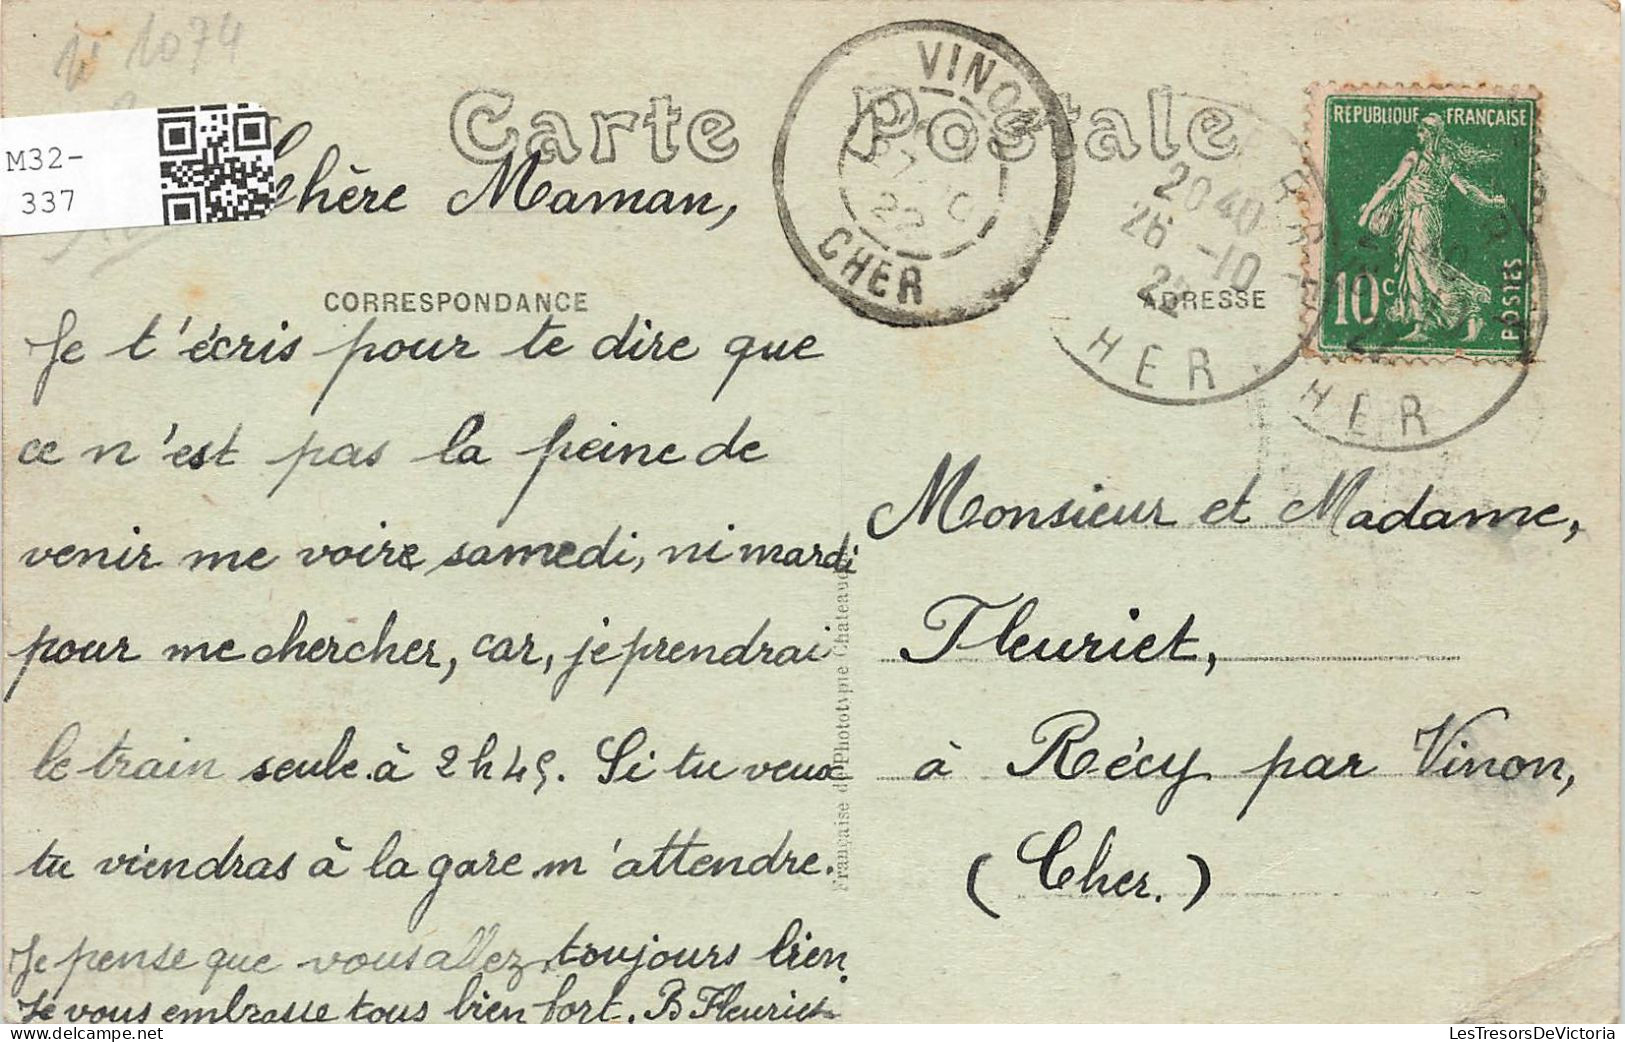 1074
M32-
337
Carte Postale
VINON
CHER
22
20 40
26 -10
22
HER
HER
REPUBLIQUE FRANÇAISE
10c
POSTES
Chère Maman,
CORRESPONDANCE
ADRESSE
Je t'écris pour te dire que
ce n'est pas la peine de
venir me voire samedi, ni mardi
pour me chercher, car, je prendrai
le train seule à 2h45. Si tu veux
tu viendras à la gare m'attendre.
Je pense que vous allez toujours bien.
Je vous embrasse tous bien fort. B Fleuriet
Française de Phototypie Chateau
Monsieur et Madame,
Fleuriet,
à Récy par Vinon,
(Cher.)
LesTresorsDeVictoria.com